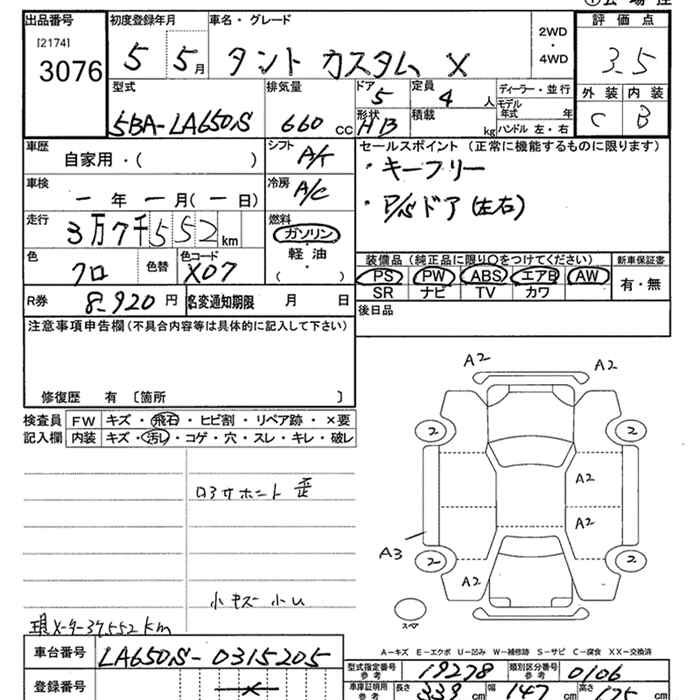 出品番号
[2174]
3076
初度登録年月
5 5月
車名・グレード
タント カスタム X
2WD
・
4WD
評価点
3.5
外装 内装
C B
型式
5BA-LA650S
排気量
660 cc
ドア
5
形状
HB
定員
4 人
積載
kg
ディーラー・並行
モデル年式 年
ハンドル 左・右
車歴
自家用・( )
シフト
A/T
車検
- 年 - 月 ( - 日)
冷房
A/C
走行
3万7千552km
燃料
ガソリン
軽油
( )
色
クロ
色替
色コード
X07
R券
8,920円
名変通知期限 月 日
セールスポイント (正常に機能するものに限ります)
・キーフリー
・P/Sドア(左右)
装備品 (純正品に限り○をつけてください)
PS PW ABS エアB AW
SR ナビ TV カワ
新車保証書
有・無
後日品
注意事項申告欄(不具合内容等は具体的に記入して下さい)
修復歴 有 〔箇所 〕
検査員記入欄
FW キズ・飛石・ヒビ割・リペア跡・×要
内装 キズ・汚レ・コゲ・穴・スレ・キレ・破レ
ロアサホート 歪
小キズ 小U
現メーター37,552km
A2
A2
2
2
A2
A2
A3
2
2
A2
スペア
A-キズ E-エクボ U-凹み W-補修跡 S-サビ C-腐食 XX-交換済
車台番号
LA650S-0315205
登録番号
型式指定番号
参考
19278
類別区分番号
参考
0106
車庫証明用
参考
長さ
339 cm
幅
147 cm
高さ
175 cm